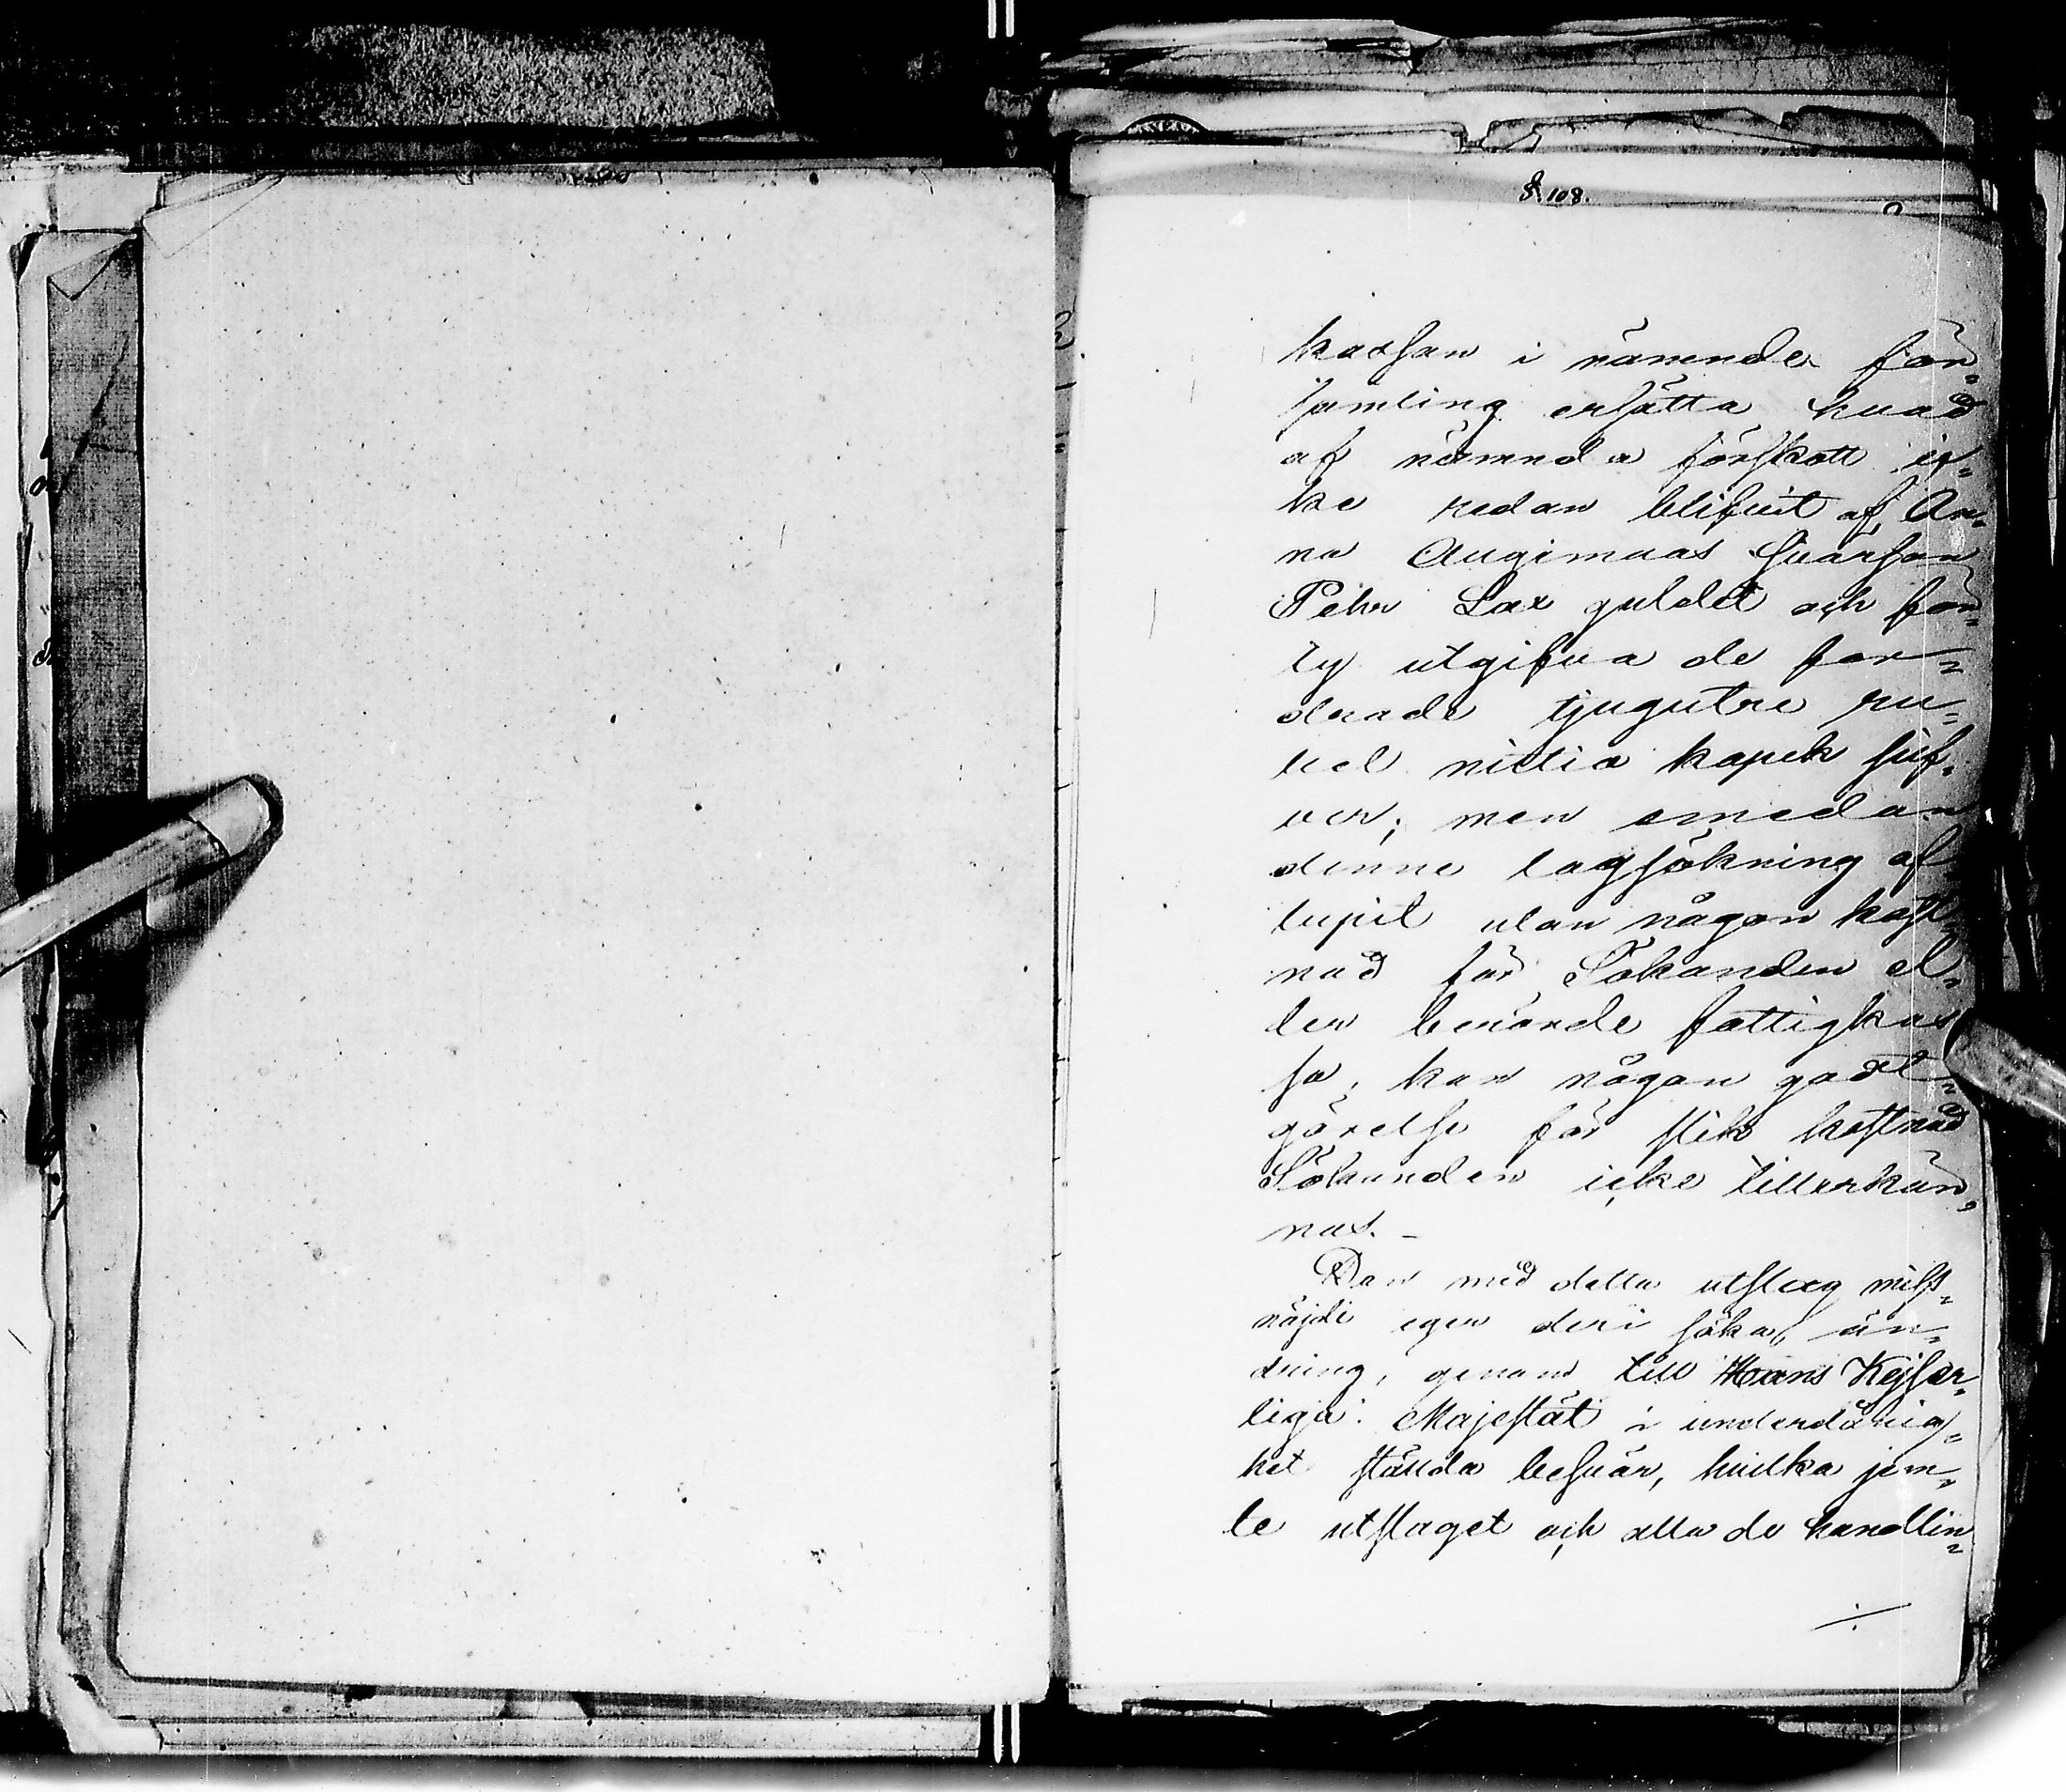 §. 108.
kassan i nämnde för-
samling ersätta hvad
af nämnda förskott ic-
ke redan blifvit af An-
na Augimaas svärson
Pehr Lax guldet och för-
ty utgifva de for-
drade tjugutre ru-
bel nittio kopek silf-
ver; men emedan
denne lagsökning af
lupit utan någon kost-
nad för Sökanden el-
ler berörde fattigkas
sa, kan någon godt-
görelse för slik kostnad
Sökanden icke tillerkän-
nas. -
Den med detta utslag miss-
nöjde eger deri söka än-
dring, genom till Hans Kejser-
liga Majestät i underdånig-
het stälda besvär, hvilka jem-
te utslaget och alla de handlin-